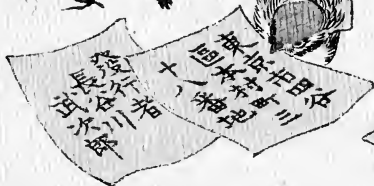 東京市四谷
區本村町三
十八番地
發行者
長谷川
武次郎